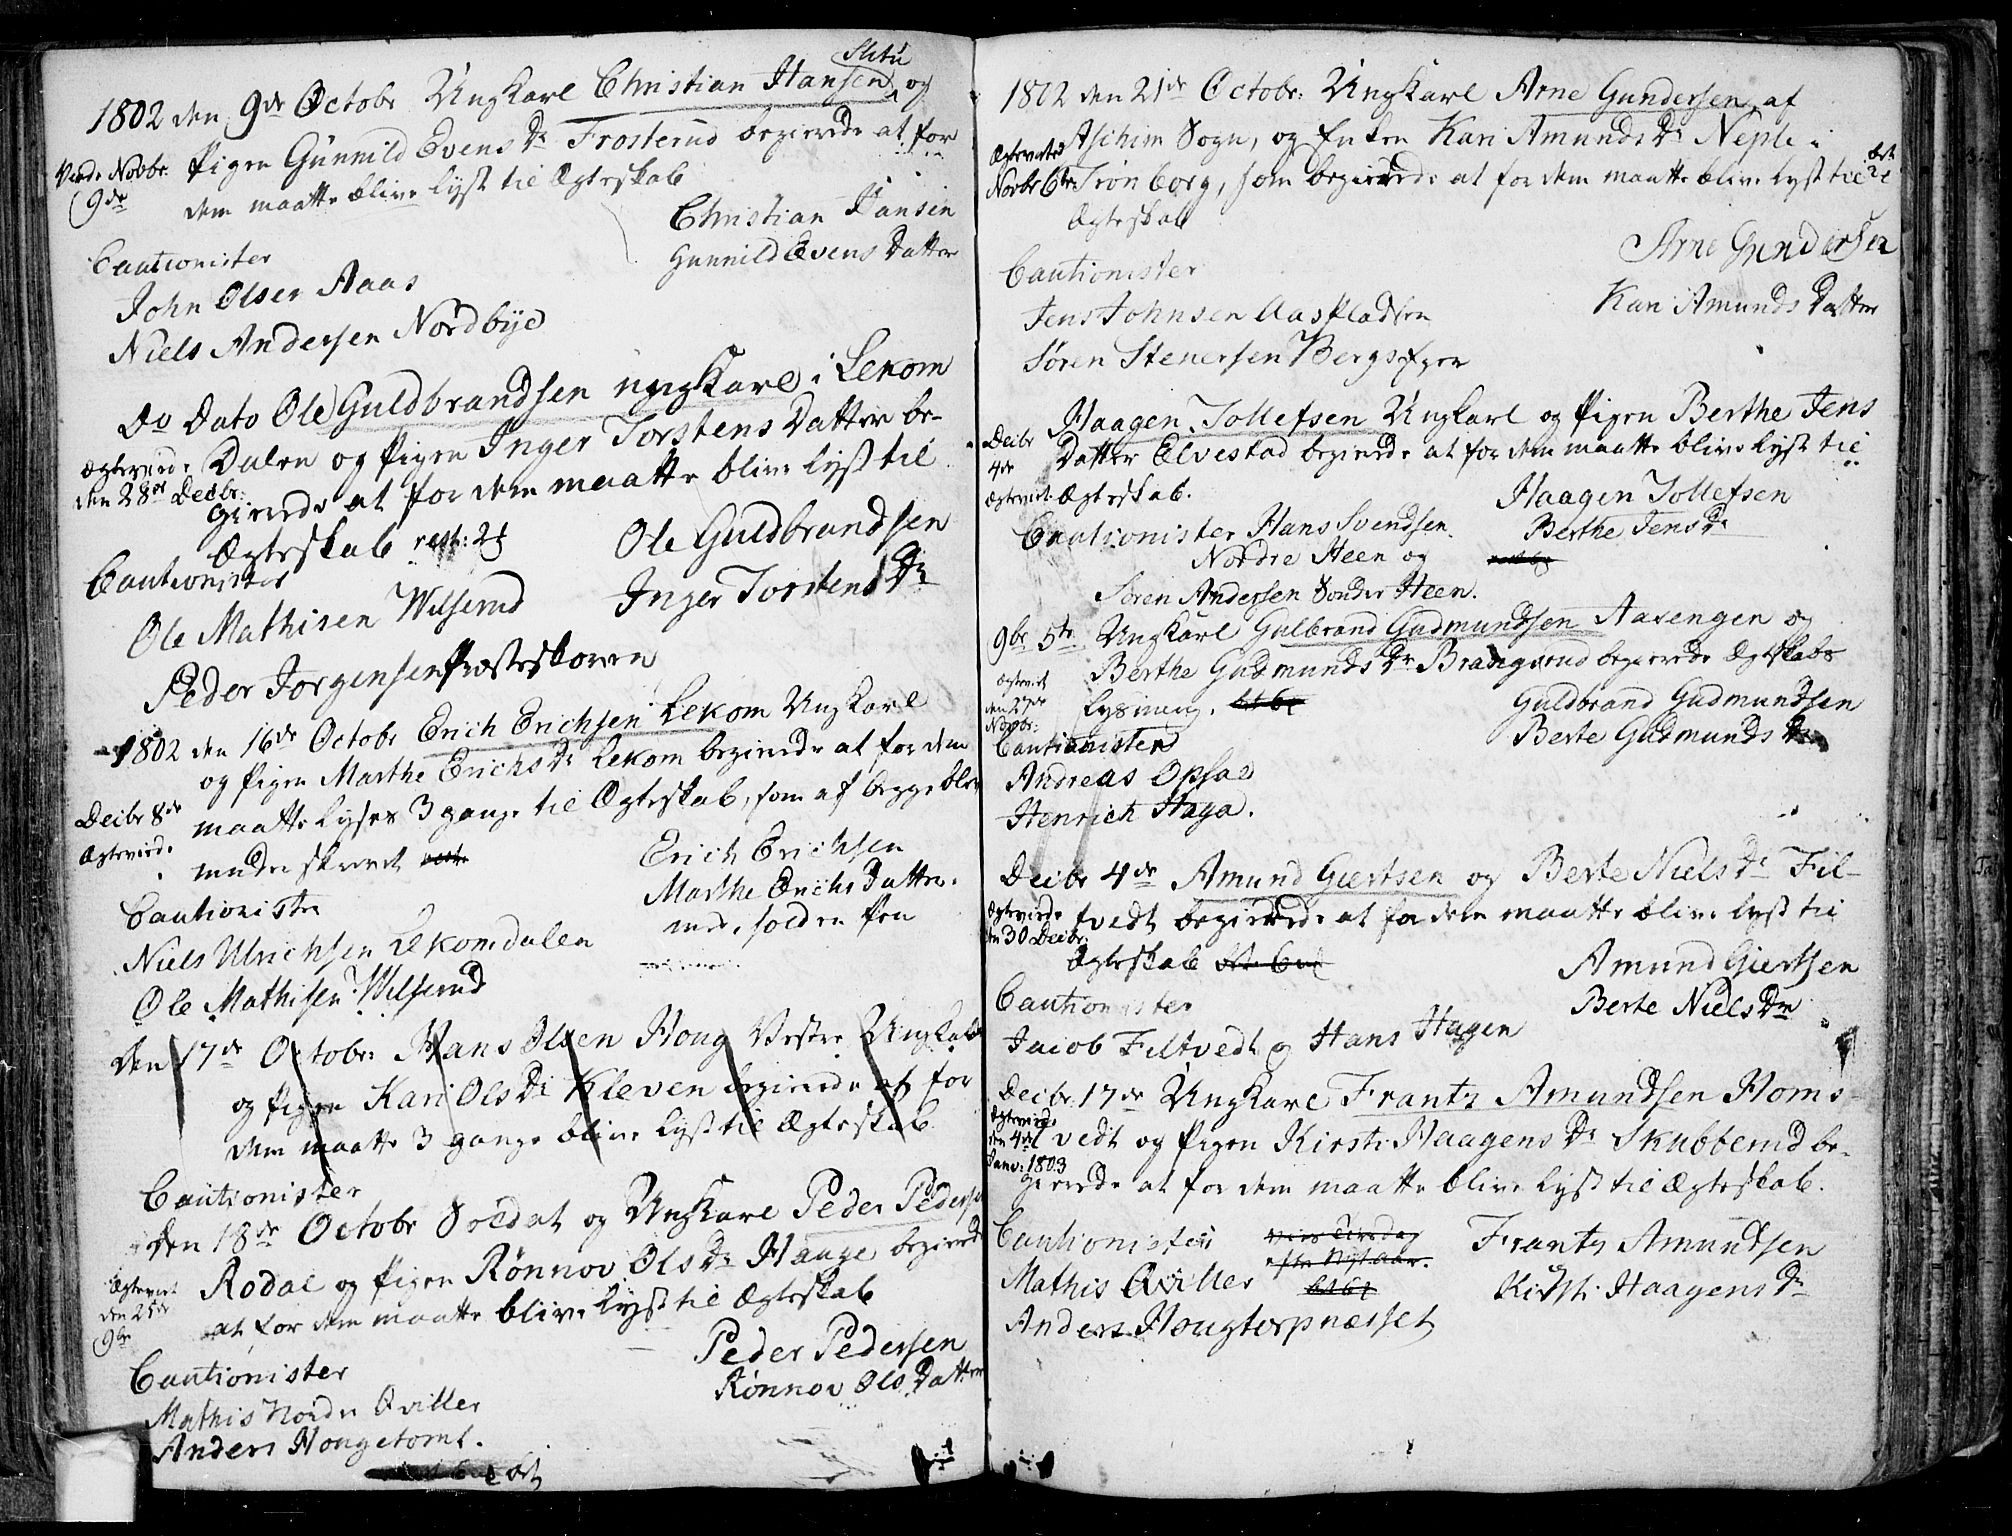 Slitu
1802 den 9de Octobr Ungkarl Christian Hansen og
Pigen Gunnild Evens Dr Frosterud begierede at for
dem maatte blive lyst til Ægteskab
Viede Novbr
9de
Christian Hansen
Gunnild Evens Datter
Cautionister
John Olsen Aaas
Niels Andersen Nordbye
Do Dato Ole Guldbrandsen ungKarl i Lekom
Dalen og Pigen Inger Torstens Datter be-
gierede at for dem maatte blive lyst til
Ægteskab rest: 2
Ægteviede
den 28de Decbr:
Ole Guldbrandsen
Inger Torstens Dr
Cautionister
Ole Mathisen Wilserud
Peder Jorgensen Præsteskoven
1802 den 16de Octobr Erich Erichsen Lekom Ungkarl
og Pigen Marthe Erichs Dr Lekom begierede at for dem
maatte lyses 3 gange til Ægteskab, som af begge blev
underskrevet
Decbr 8de
Ægteviede
Erich Erichsen
Marthe Erichs Datter.
med, holden Pen
Cautionister
Niels Ulrichsen Lekomdalen
Ole Mathisen Wilserud
Den 17de Octobr: Hans Olsen Houg Vestre Ungkarl
og Pigen Kari Ols Dr Kleven begierede at for
dem maatte 3 gange blive lyst til Ægteskab
Cautionister
Den 18de Octobr Soldat og Ungkarl Peder Pedersen
Rodal og Pigen Rønnov Ols Dr Hauge begierede
at for dem maatte blive lyst til Ægteskab
Ægteviet
den 25de
9br
Peder Pedersen
Rønnov Ols Datter
Cautionister
Mathis Nordre Qviller
Anders Hougetomt.
1802 den 21de Octobr: Ungkarl Arne Gundersen af
Aschim Sogn, og Enken Kari Amunds Dr Neple i
Trønborg, som begierede at for dem maatte blive lyst til
Ægteskab
Ægteviede
Novbr 6te
Arne Gundersen
Kari Amunds Datter
Cautionister
Jens Johnsen Aaspladsen
Søren Stenersen Bergsejer
Haagen Tollefsen Ungkarl og Pigen Berthe Jens
Datter Elvestad begierede at for dem maatte blive lyst til
Ægteskab.
Decbr
4de
Ægteviet
Haagen Tollefsen
Berthe Jens Dr
Cautionister Hans Svendsen
Nordre Heen og
Søren Andersen Sonder Heen.
9br 5te Ungkarl Gulbrand Gudmundsen Aasengen og
Berthe Gudmunds Dr Brangerud begierede Ægteskabs
Lysning.
Ægteviet
den 27de
Novbr:
Guldbrand Gudmundsen
Berte Gudmunds Dr
Cautionister
Andreas Opsal
Henrich Haga.
Decbr 4de Amund Giertsen og Berte Niels Dr Fil-
tvedt begierede at for dem maatte blive lyst til
Ægteskab
Ægteviede
den 30 Decbr:
Amund Giertsen
Berte Niels Dr
Cautionister
Jacob Filtvedt og Hans Hagen
Decbr: 17de Ungkarl Frantz Amundsen Homs-
tvedt og Pigen Kirsti Haagens Dr Skubberud be-
gierede at for dem maatte blive lyst til Ægteskab.
Ægteviede
den 4de
Janv: 1803
Cautionister
Frantz Amundsen
Kirsti Haagens Dr
Mathis Qviller
Anders Hougtorpnæsset